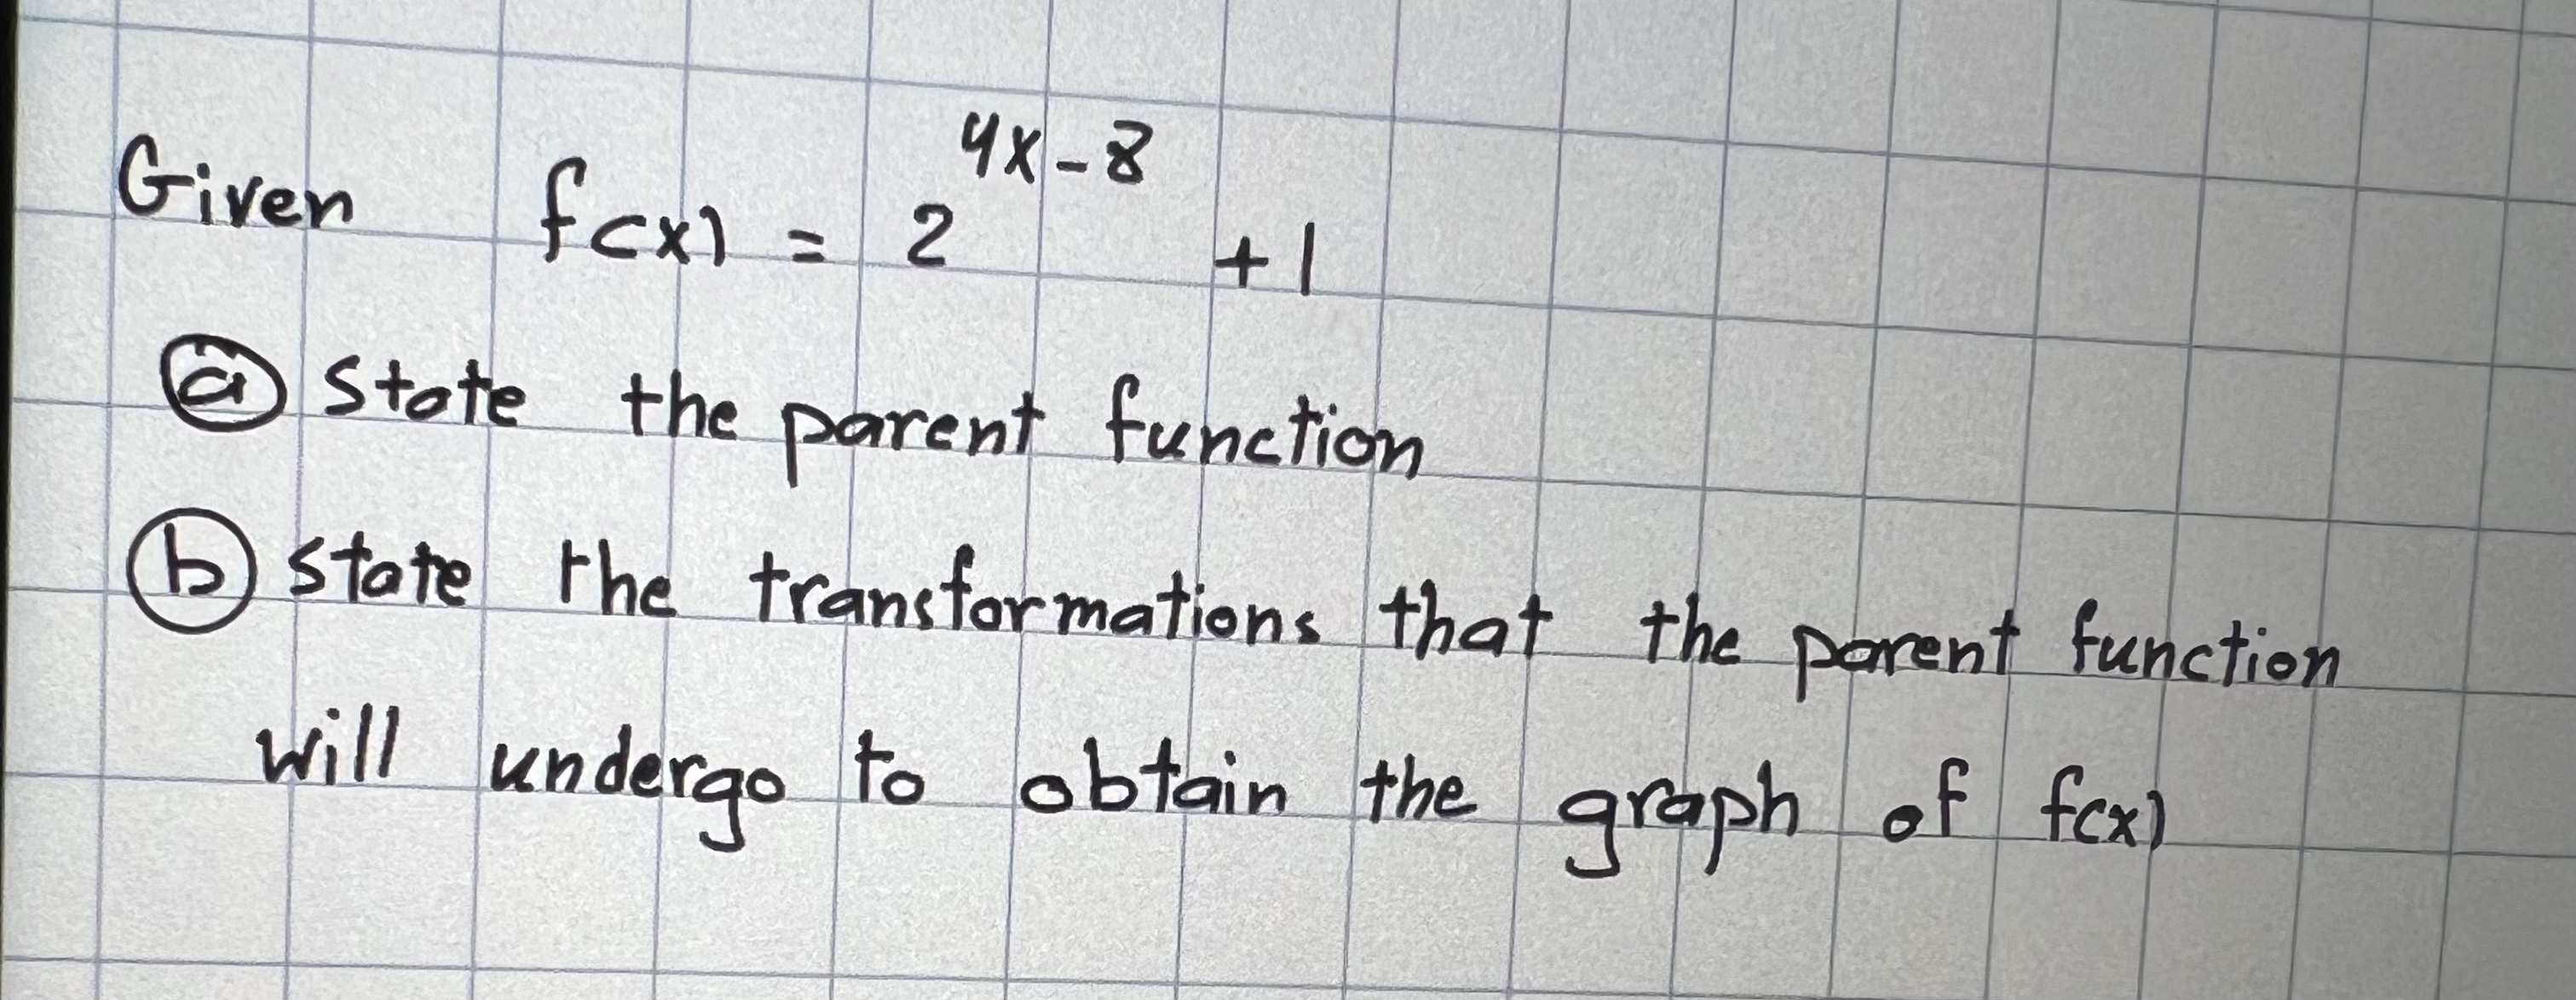 Given f(x) = 2^(4x-8) + 1
(a) State the parent function
(b) State the transformations that the parent function
will undergo to obtain the graph of f(x)